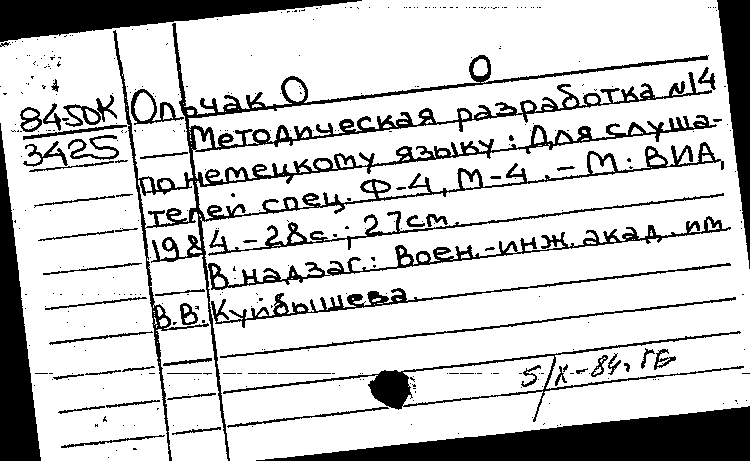 О
84-5DK Ольчак, О
3425 Методическая разработка №14
по немецкому языку: Для слуша-
телей спец. Ф-4, М-4. – М: ВИА,
1984. – 28с.; 27см.
В надзаг.: Воен.-инж. акад. им
В.В. Куйбышева.
5/X-84г. ГБ